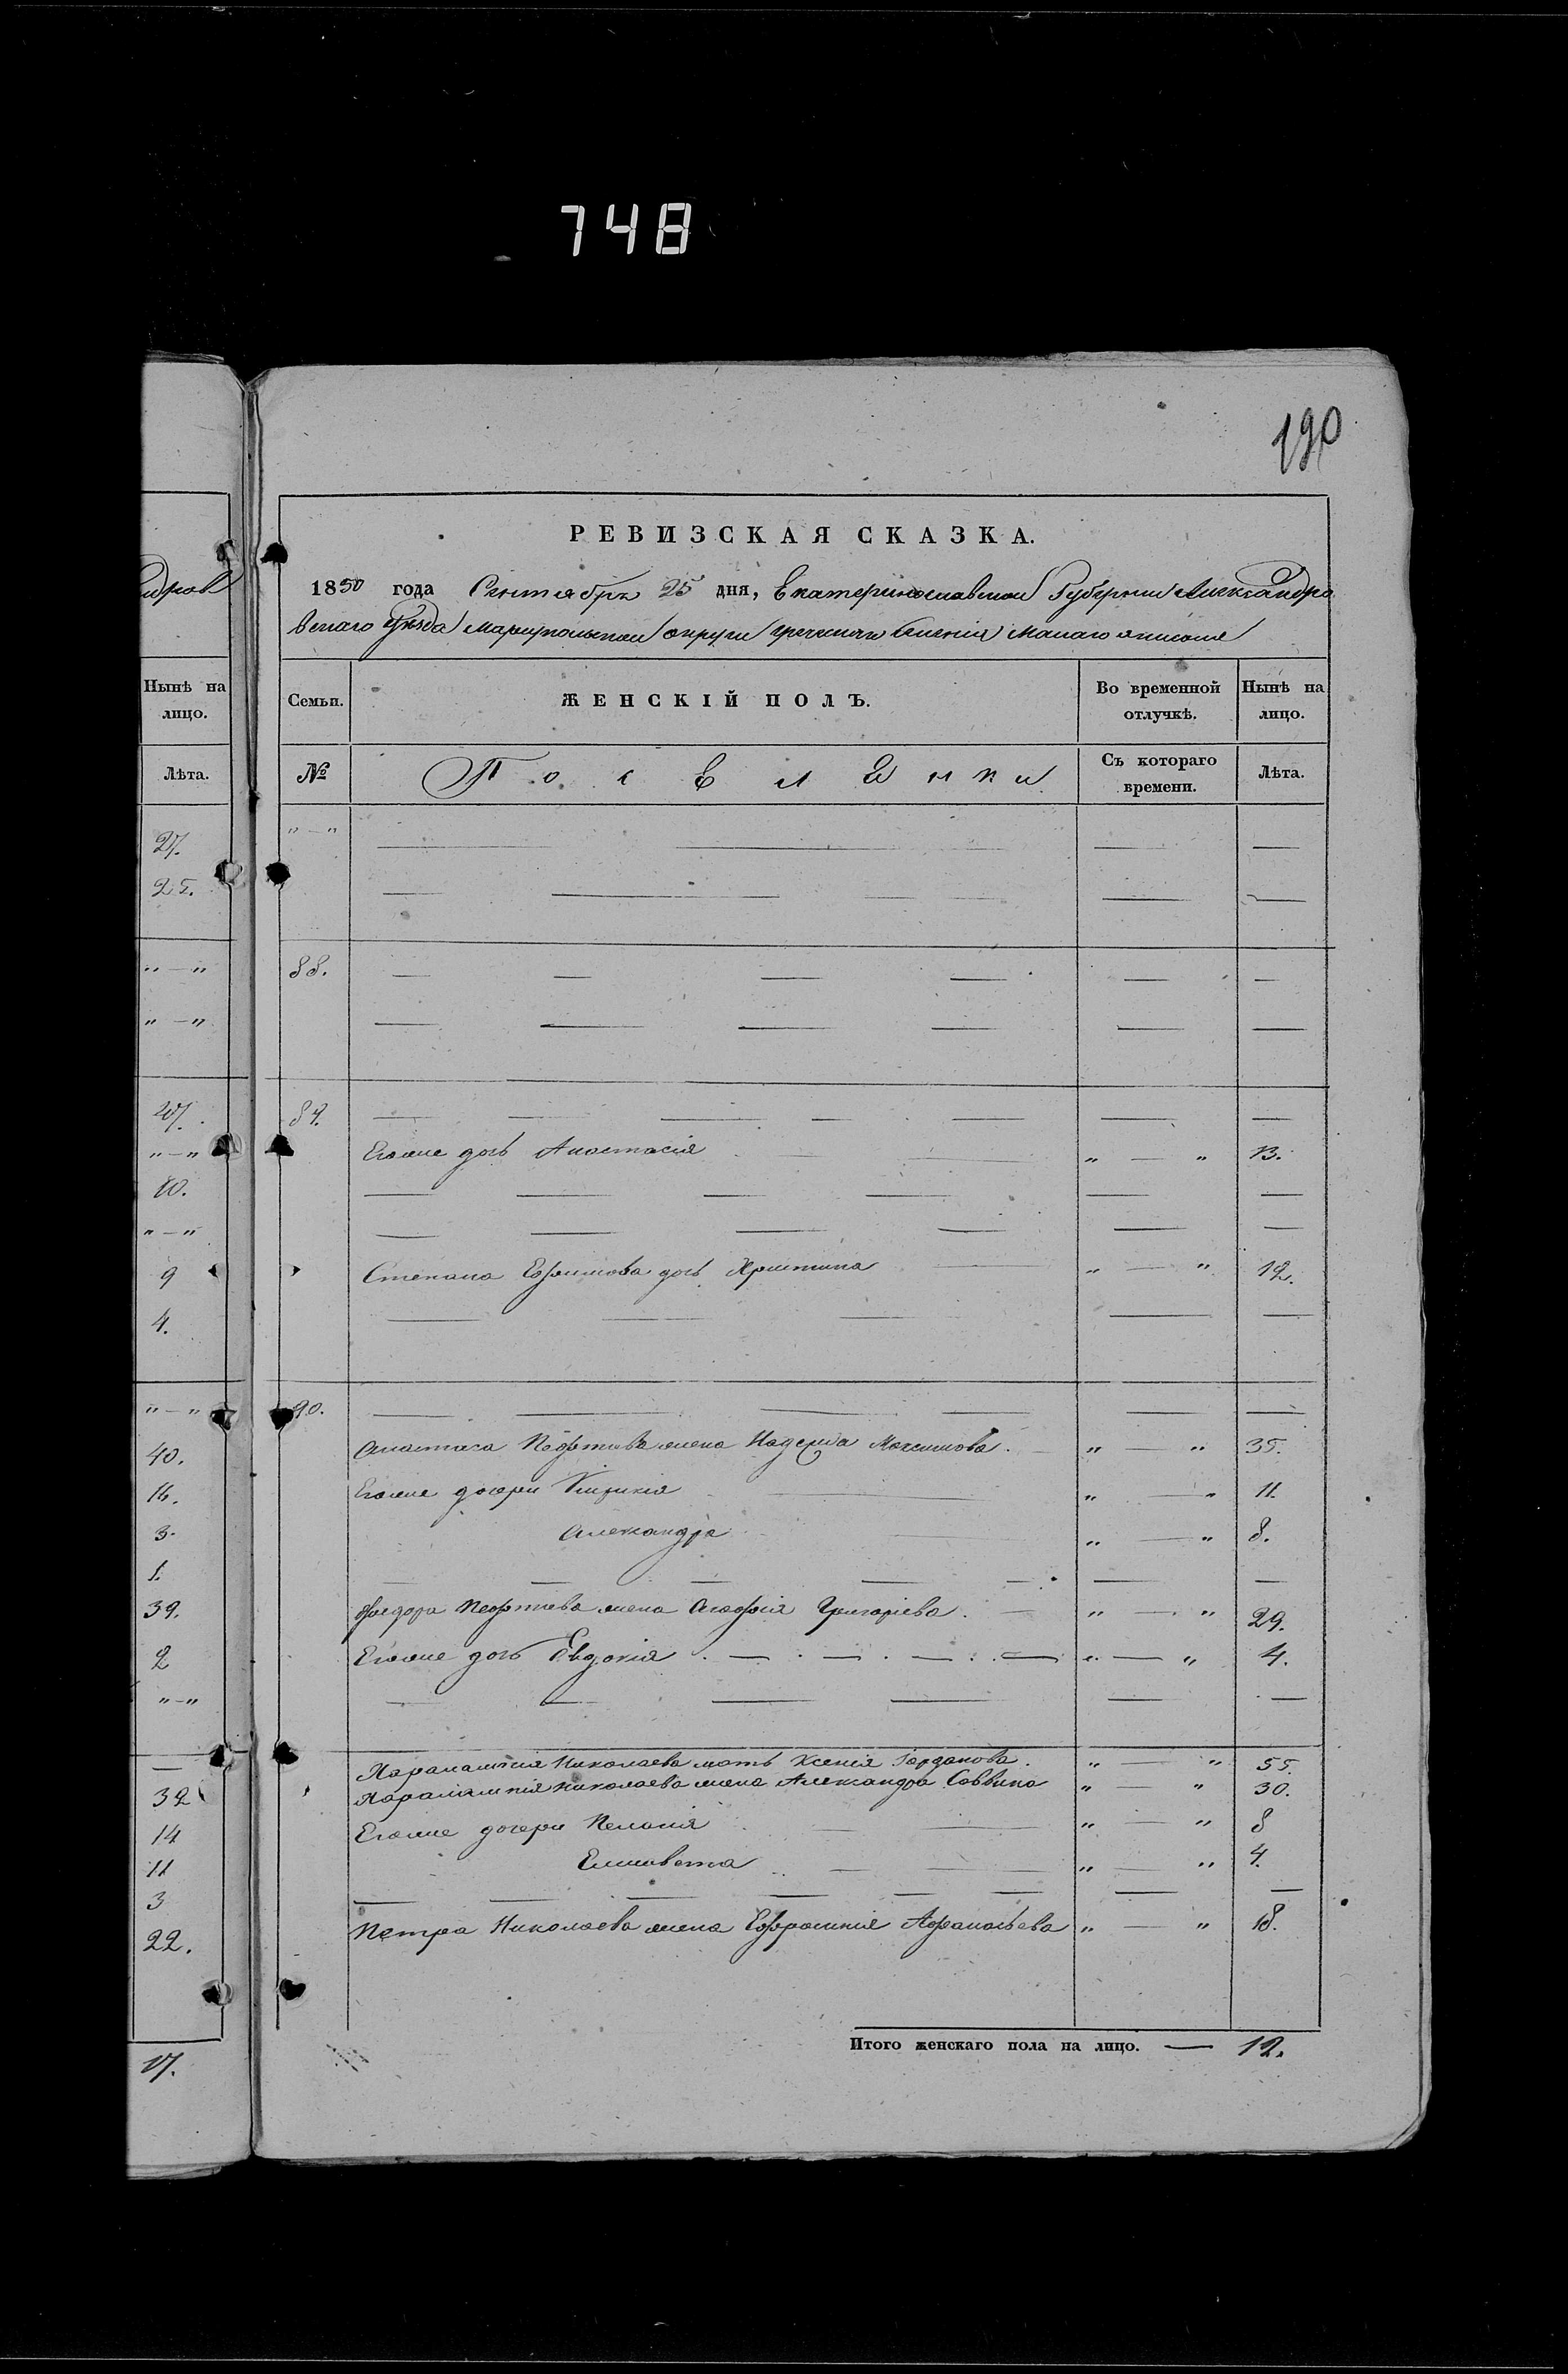 748
190
РЕВИЗСКАЯ СКАЗКА.
1850 года Сентября 25 дня, Екатеринославской Губерніи Александро
вскаго Уѣзда Маріупольской округи греческаго селенія Малаго Янисоля
дров
Нынѣ на лицо.
Семьи.
ЖЕНСКІЙ ПОЛЪ.
Во временной отлучкѣ.
Нынѣ на лицо.
Лѣта.
№
Поселянки
Съ котораго времени.
Лѣта.
27. "—"
25.
"—" 88.
"—"
27. 89.
"—" Егоже дочь Анастасія " — " 13.
10.
"—"
9 Степана Ефимова дочь Христина " — " 12.
4.
"—" 90.
40. Анастаса жена Надежда Максимова. " — " 35.
16. Егоже дочери " — " 11.
3. Александра " — " 8.
1.
39. Феодора жена Агафія Григоріева. " — " 29.
2 Егоже дочь Евдокія " — " 4.
"—"
— Харалампія Николаева мать Ксенія Іорданова. " — " 55.
32 Харалампія Николаева жена Александра Саввина " — " 30.
14 Егоже дочери Пелагія " — " 8
11 Елисавета " — " 4.
3
22. Петра Николаева жена Ефросинія Афанасьева " — " 18.
Итого женскаго пола на лицо. — 12.
17.